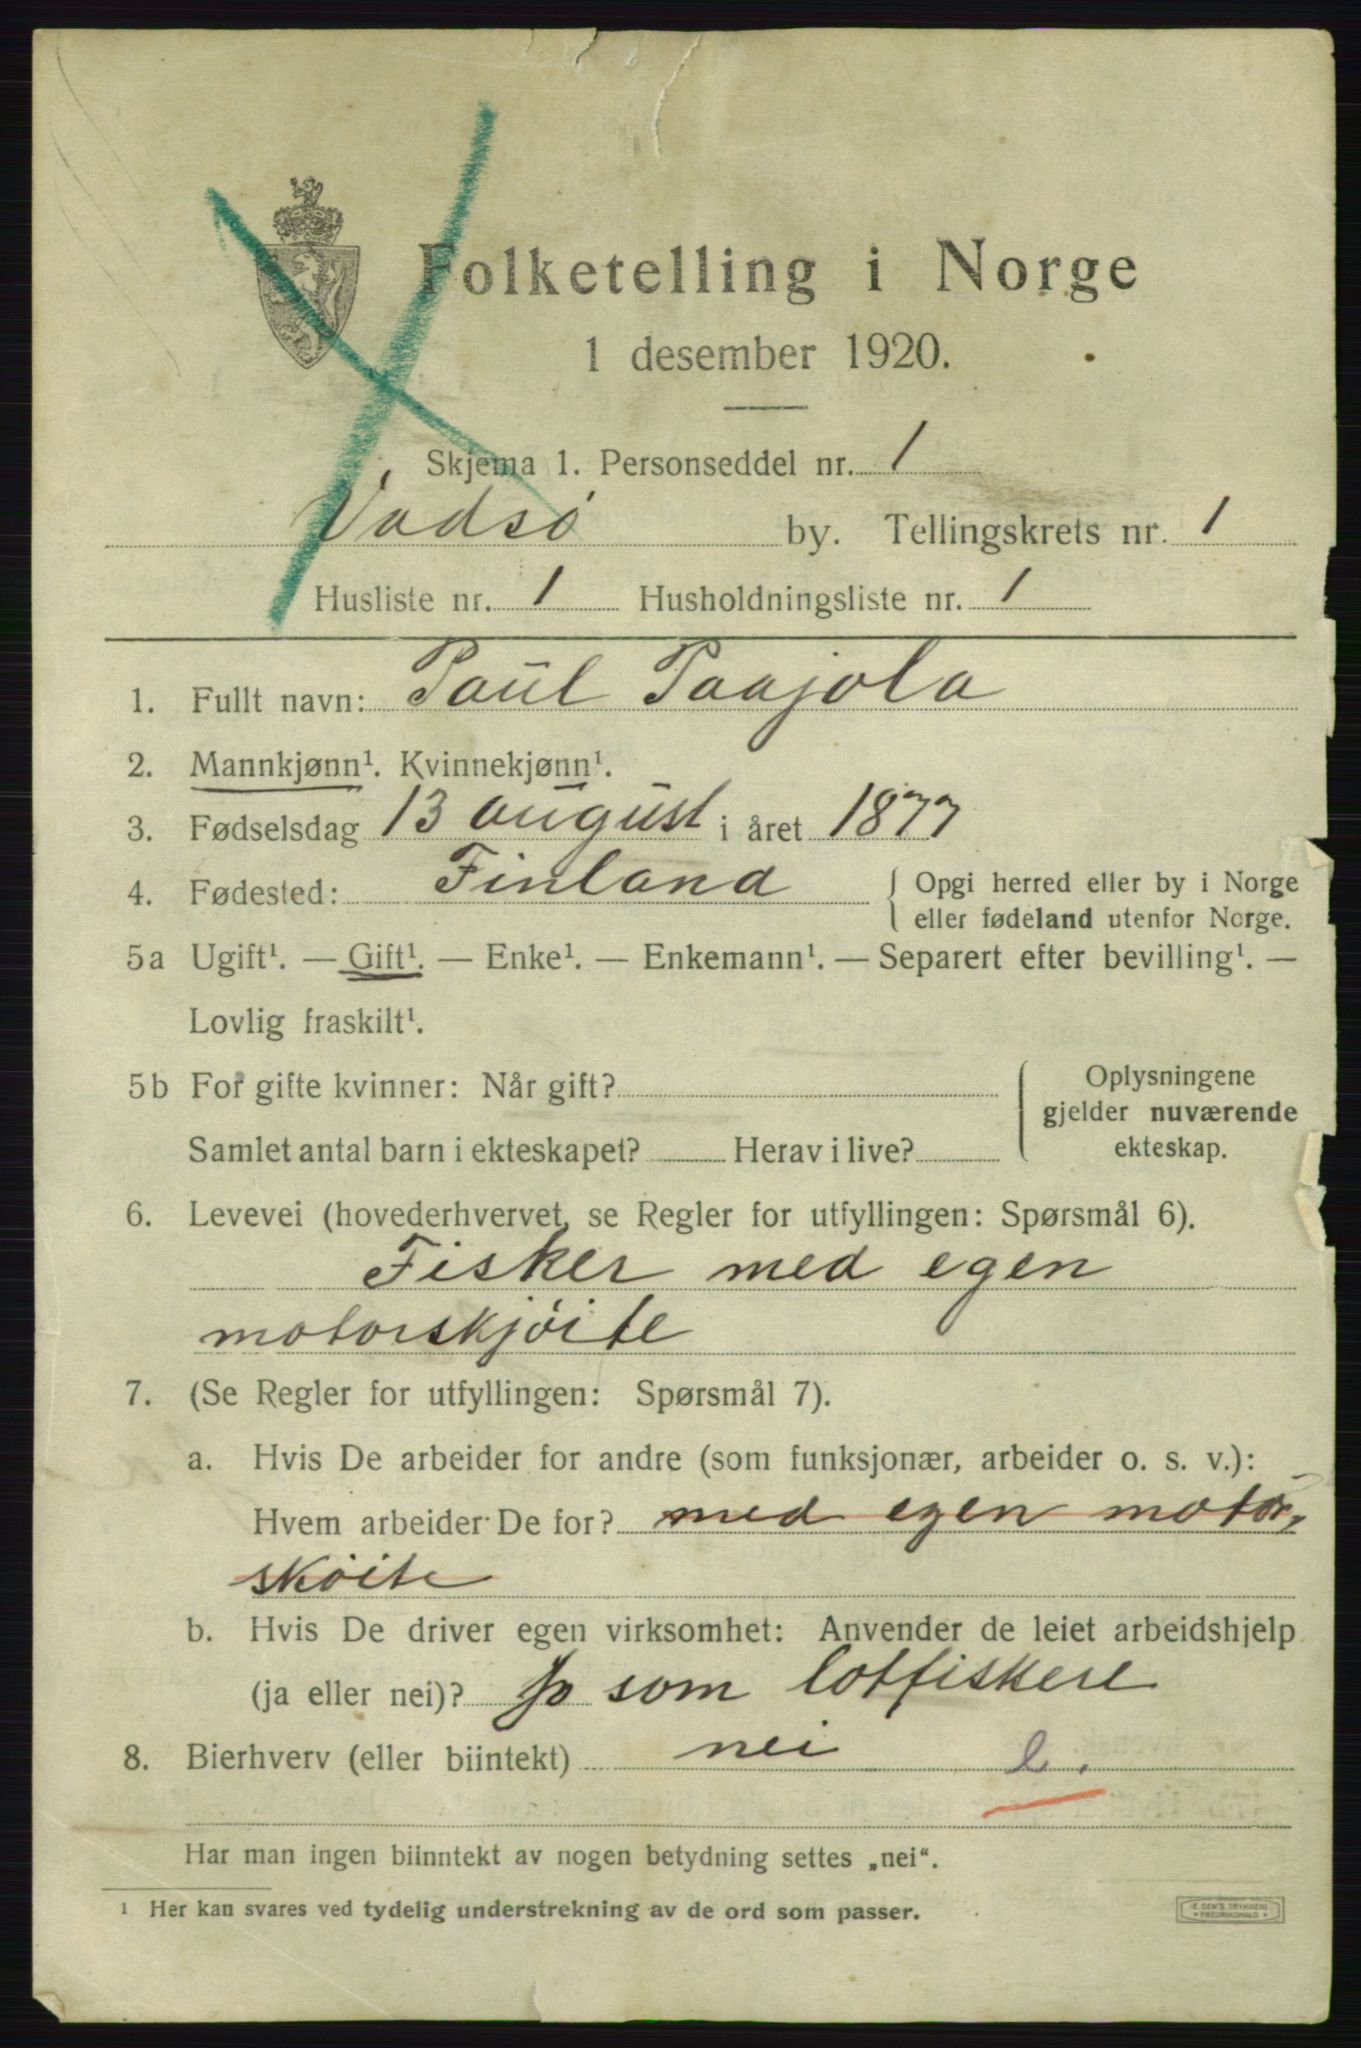 Folketelling i Norge
1 desember 1920.
Skjema 1. Personseddel nr. 1
Vadsø by. Tellingskrets nr. 1
Husliste nr. 1 Husholdningsliste nr. 1
1. Fullt navn: Paul Paajola
2. Mannkjønn¹. Kvinnekjønn¹.
3. Fødselsdag 13 august i året 1877
4. Fødested: Finland { Opgi herred eller by i Norge
eller fødeland utenfor Norge.
5a Ugift¹. — Gift¹. — Enke¹. — Enkemann¹. — Separert efter bevilling¹. —
Lovlig fraskilt¹.
5b For gifte kvinner: Når gift?
Samlet antal barn i ekteskapet? Herav i live?
{ Oplysningene
gjelder nuværende
ekteskap.
6. Levevei (hovederhvervet, se Regler for utfyllingen: Spørsmål 6).
Fisker med egen
motorskjöite
7. (Se Regler for utfyllingen: Spørsmål 7).
a. Hvis De arbeider for andre (som funksjonær, arbeider o. s. v.):
Hvem arbeider De for? med egen motor-
sköite
b. Hvis De driver egen virksomhet: Anvender de leiet arbeidshjelp
(ja eller nei)? Ja som lotfiskere
8. Bierhverv (eller biintekt) nei
Har man ingen biinntekt av nogen betydning settes „nei“.
¹ Her kan svares ved tydelig understrekning av de ord som passer.
E. SEM'S TRYKKERI
FREDRIKSHALD